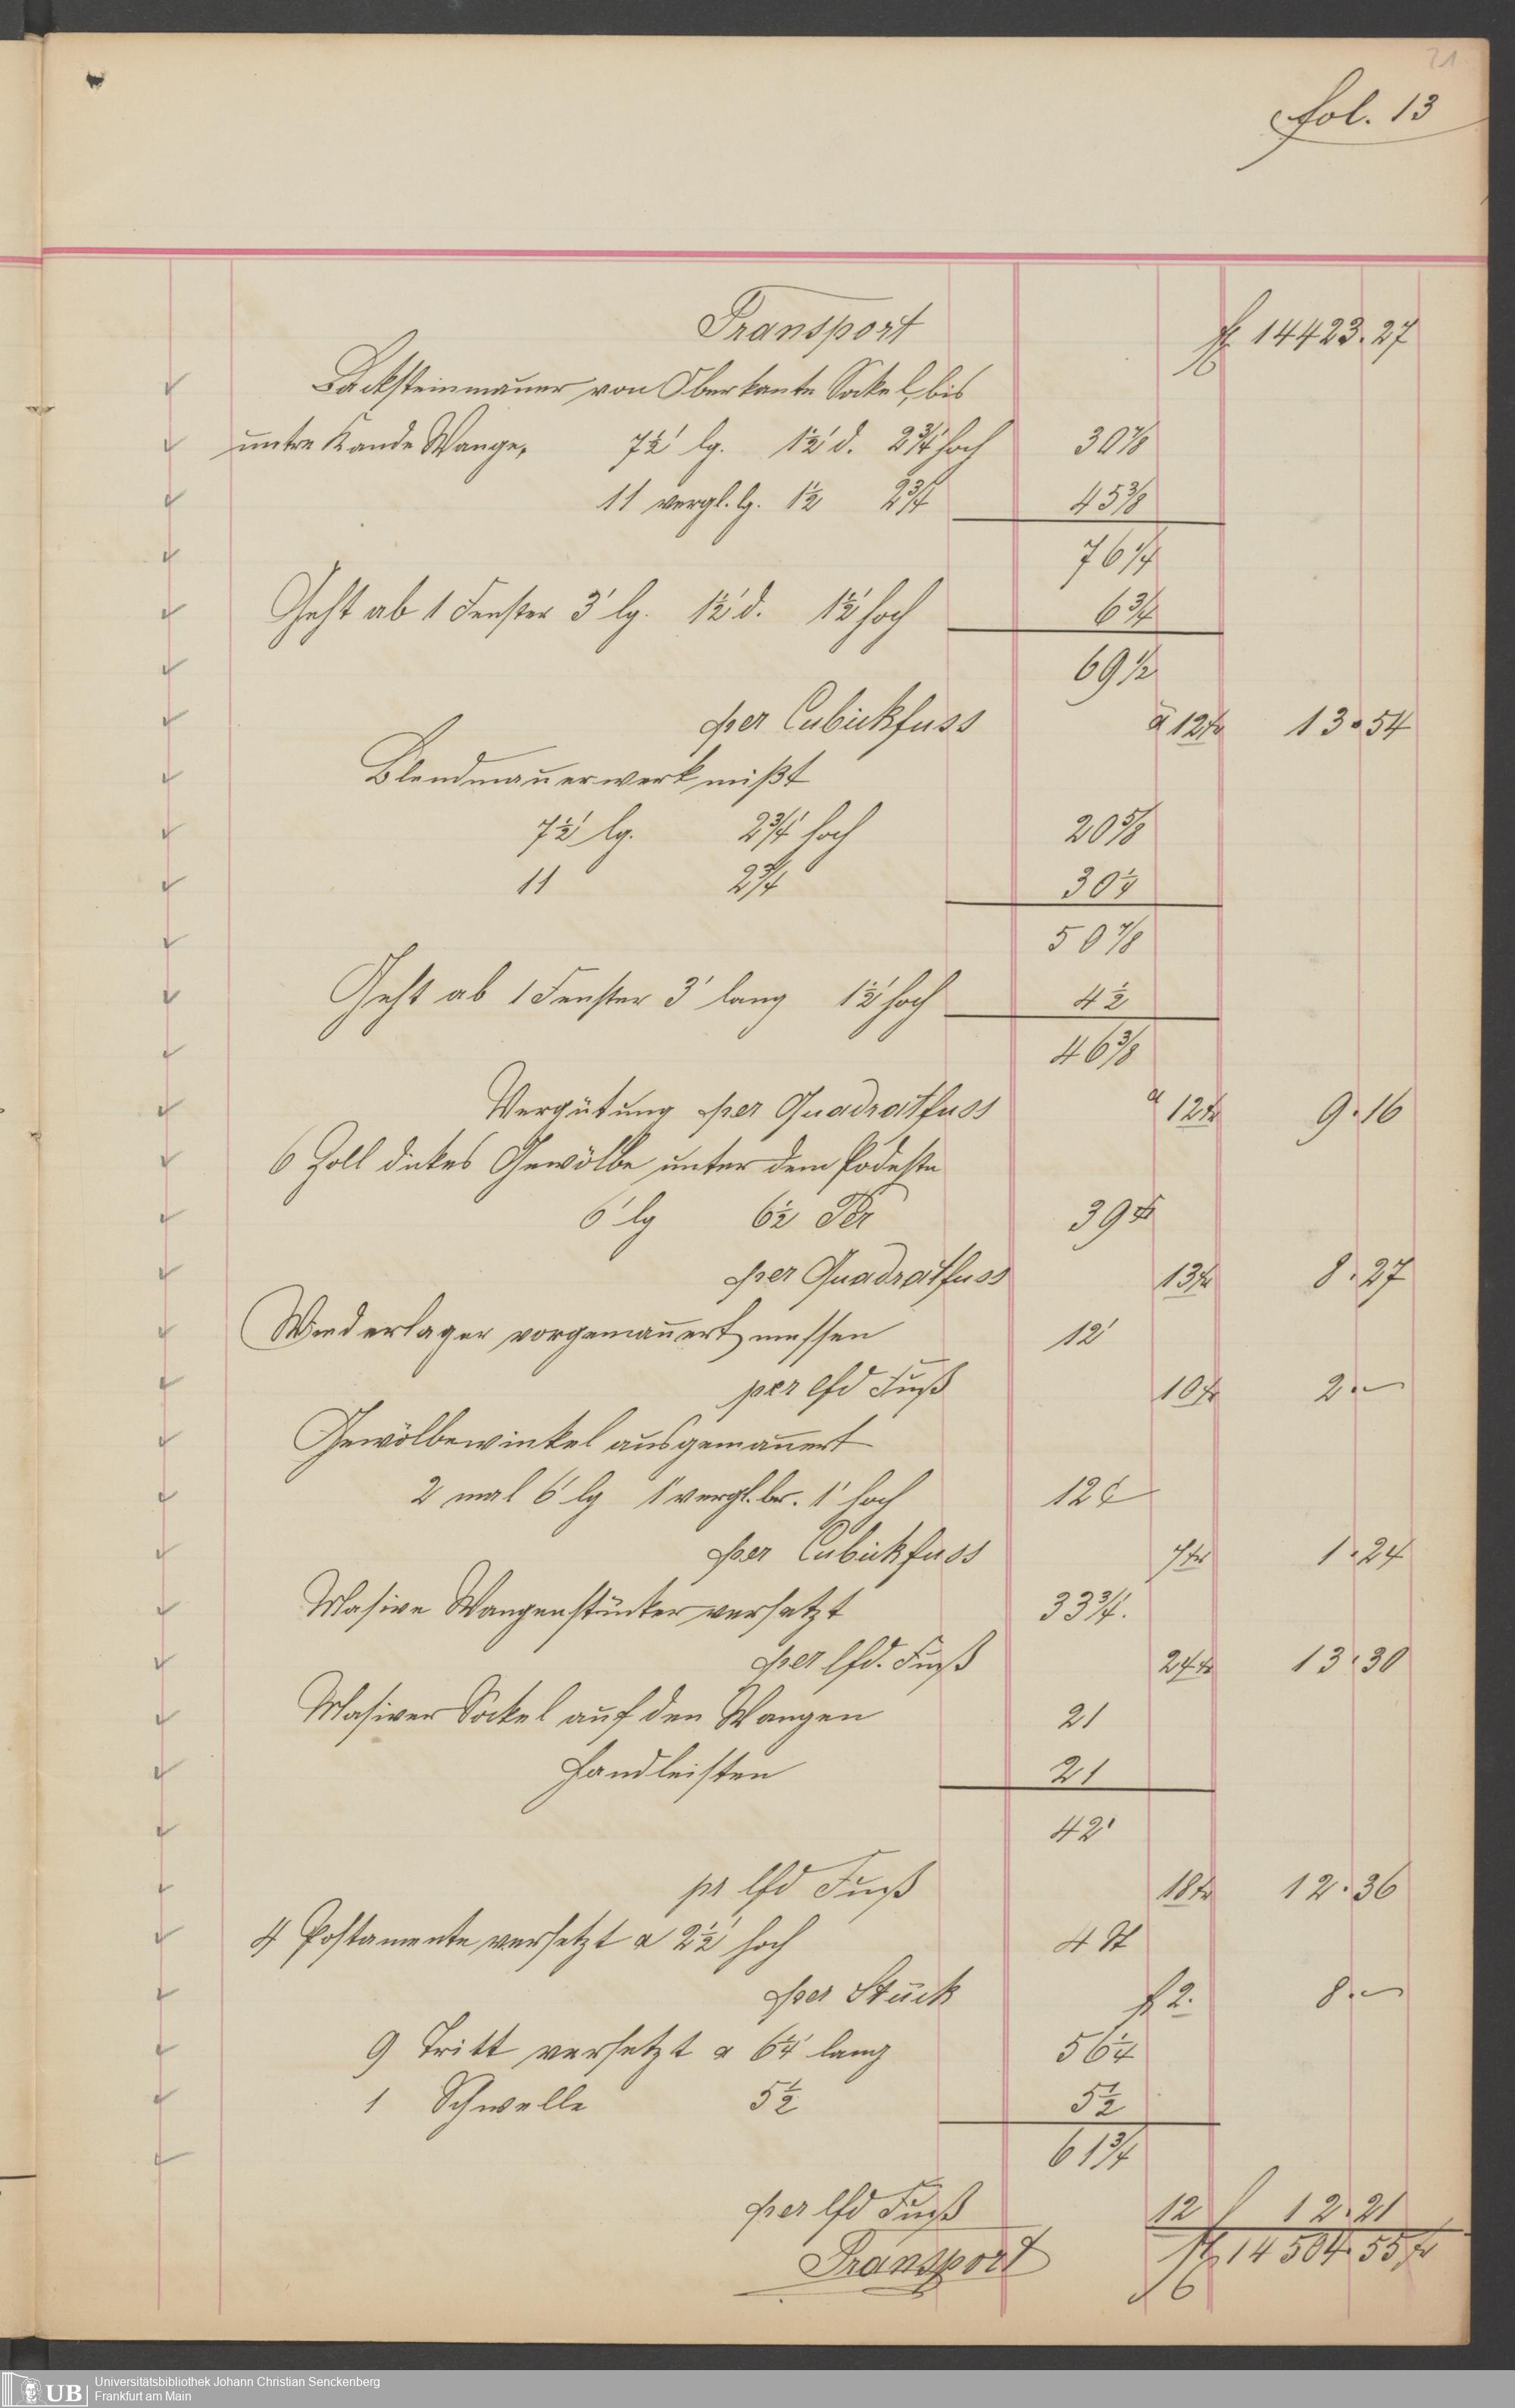 21
fol. 13
Transport fl 14423.27
Backsteinmauer von Oberkante Sockel, bis
untre Kande Wange, 7½' lg. 1½' d. 2¾' hoch 30⅞
11 vergl. lg. 1½ 2¾ 45⅜
76¼
Geht ab 1 Fenster 3' lg. 1½' d. 1½' hoch 6¾
69½
per Cubickfuss à 12 kr 13.54
Blendmauerwerk mißt
7½' lg. 2¾' hoch 20⅝
11 2¾ 30¼
50⅞
Geht ab 1 Fenster 3' lang 1½' hoch 4½
46⅜
Vergütung per Quadratfuss a 12 kr 9.16
6 Zoll dickes Gewölbe unter dem Podeste
6' lg 6½ 39
per Quadratfuss 13 kr 8.27
Wiederlager vorgemauert messen 12'
per lfd Fuß 10 kr 2.—
Gewölbewinkel ausgemauert
2 mal 6' lg 1' vergl. br. 1' hoch 12 c
per Cubickfuss 7 kr 1.24
Masive Wangenstücker versetzt 33¾.
per lfd. Fuß 24 kr 13.30
Masiver Sockel auf den Wangen 21
Handleisten 21
42'
pr lfd Fuß 18 kr 12.36
4 Postamente versetzt a 2½' hoch 4 St
per Stück fl 2. 8.—
9 Tritt versetzt a 6¼' lang 56¼
1 Schwelle 5½ 5½
61¾
per lfd Fuß 12 12.21
Transport fl 14504.55 kr
UB Universitätsbibliothek Johann Christian Senckenberg
Frankfurt am Main